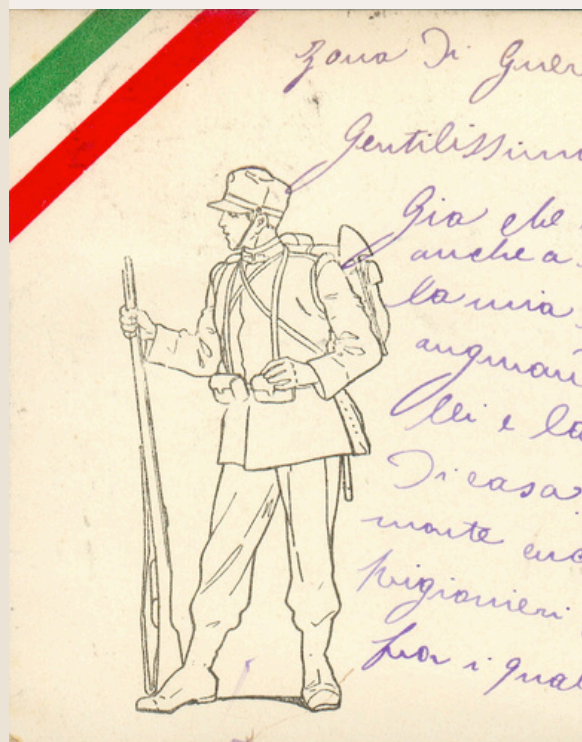 Zona Di Guer
Gentilissim
Gia che
anche a
la mia
augman
lli e la
Di casa
monte
prigionieri
fra i qual